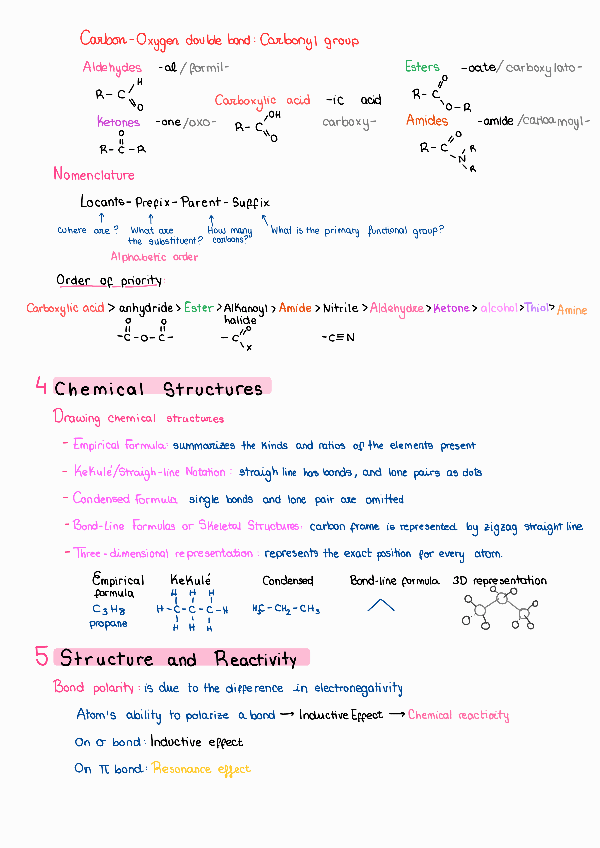 Carbon-Oxygen double bond: Carbonyl group
Aldehydes -al/formil-
Esters -oate/carboxylato-
R-C H O
R-C O O-R
Carboxylic acid -ic acid
carboxy-
R-C OH O
Ketones -one/oxo-
O
R-C-R
Amides -amide/carbamoyl-
R-C O N R R
Nomenclature
Locants-Prefix-Parent-Suffix
Where are? What are the substituent? How many carbons? What is the primary functional group?
Alphabetic order
Order of priority:
Carboxylic acid > anhydride > Ester > Alkanoyl halide > Amide > Nitrile > Aldehydze > Ketone > alcohol > Thiol > Amine
O O
-C-O-C-
-C O X
-C≡N
4 Chemical Structures
Drawing chemical structures
- Empirical Formula: summarizes the kinds and ratios of the elements present
- Kekulé/Straigh-line Notation: straigh line has bonds, and lone pairs as dots
- Condensed Formula single bonds and lone pair are omitted
- Bond-Line Formulas or Skeletal Structures: carbon frame is represented by zigzag straight line
- Three-dimensional representation: represents the exact position for every atom.
Empirical formula Kekulé Condensed Bond-line formula 3D representation
C3H8
propane
H H H
H-C-C-C-H
H H H
H3C-CH2-CH3
5 Structure and Reactivity
Bond polarity: is due to the difference in electronegativity
Atom's ability to polarize a bond → Inductive Effect → Chemical reactivity
On σ bond: Inductive effect
On π bond: Resonance effect